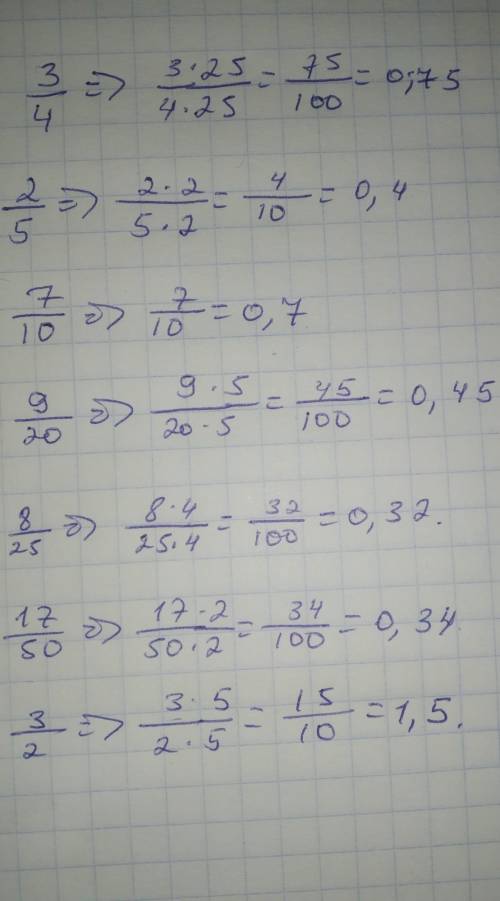 3/4 => 3·25/4·25 = 75/100 = 0,75
2/5 => 2·2/5·2 = 4/10 = 0,4
7/10 => 7/10 = 0,7
9/20 => 9·5/20·5 = 45/100 = 0,45
8/25 => 8·4/25·4 = 32/100 = 0,32.
17/50 => 17·2/50·2 = 34/100 = 0,34.
3/2 => 3·5/2·5 = 15/10 = 1,5.